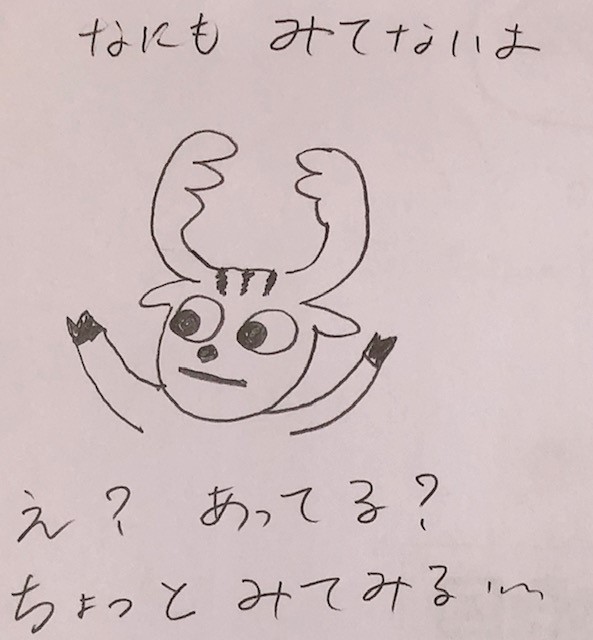 なにも みてないよ
え? あってる?
ちょっと みてみる…